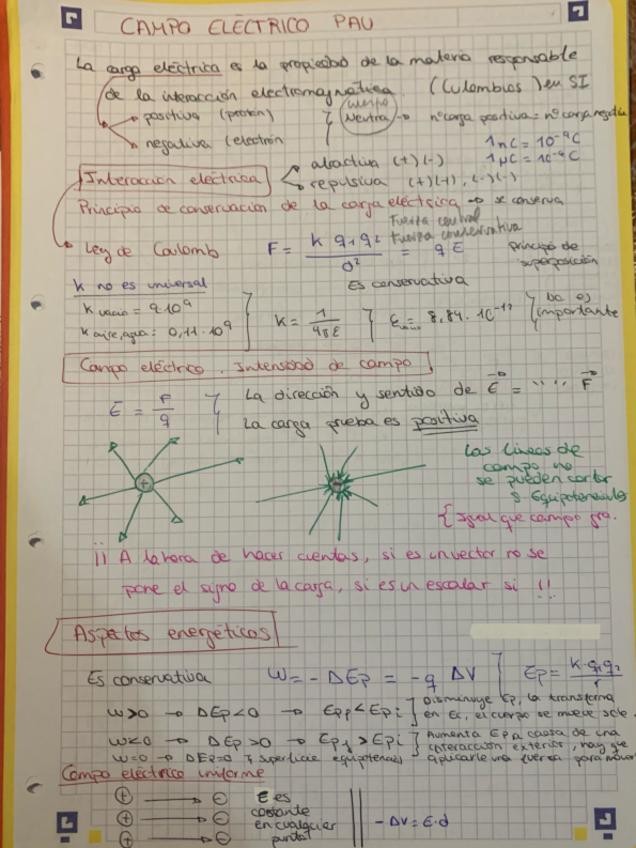 CAMPO ELÉCTRICO PAU
La carga eléctrica es la propiedad de la materia responsable
de la interacción electromagnética. (Culombios) en SI
positiva (protón)
negativa (electrón
cuerpo
Neutra → nº carga positiva = nº carga negativa
1nC = 10⁻⁹C
1μC = 10⁻⁶C
Interacción eléctrica
atractiva (+)(-)
repulsiva (+)(+), (-)(-)
Principio de conservación de la carga eléctrica → se conserva
Fuerza central
Fuerza conservativa
Ley de Coulomb F = k q₁q₂ / d² = q E
principio de
superposición
K no es universal
Es conservativa
K vacío = 9·10⁹
K aire, agua: 0,11·10⁹
K = 1/4πε
= 8,84·10⁻¹²
importante
Campo eléctrico. Intensidad de campo
E = F/q
La dirección y sentido de E = " " " F
La carga prueba es positiva
+
Las líneas de
campo no
se pueden cortar
Equipotenciales
{Igual que campo gra.
¡¡ A la hora de hacer cuentas, si es un vector no se
pone el signo de la carga, si es un escalar si !!
Aspectos energéticos
Es conservativa W = -ΔEp = -q ΔV Ep = K·q₁q₂/r
W>0 → ΔEp<0 → Epf<Epi
Disminuye Ep, la transforma
en Ec, el cuerpo se mueve solo.
W<0 → ΔEp>0 → Epf>Epi
Aumenta Ep a causa de una
interacción exterior, hay que
aplicarle una fuerza para mover
W=0 → ΔEp=0 superficie equipotencial
Campo eléctrico uniforme
+ → -
+ → -
+ → -
E es
constante
en cualquier
punto
-ΔV = E·d